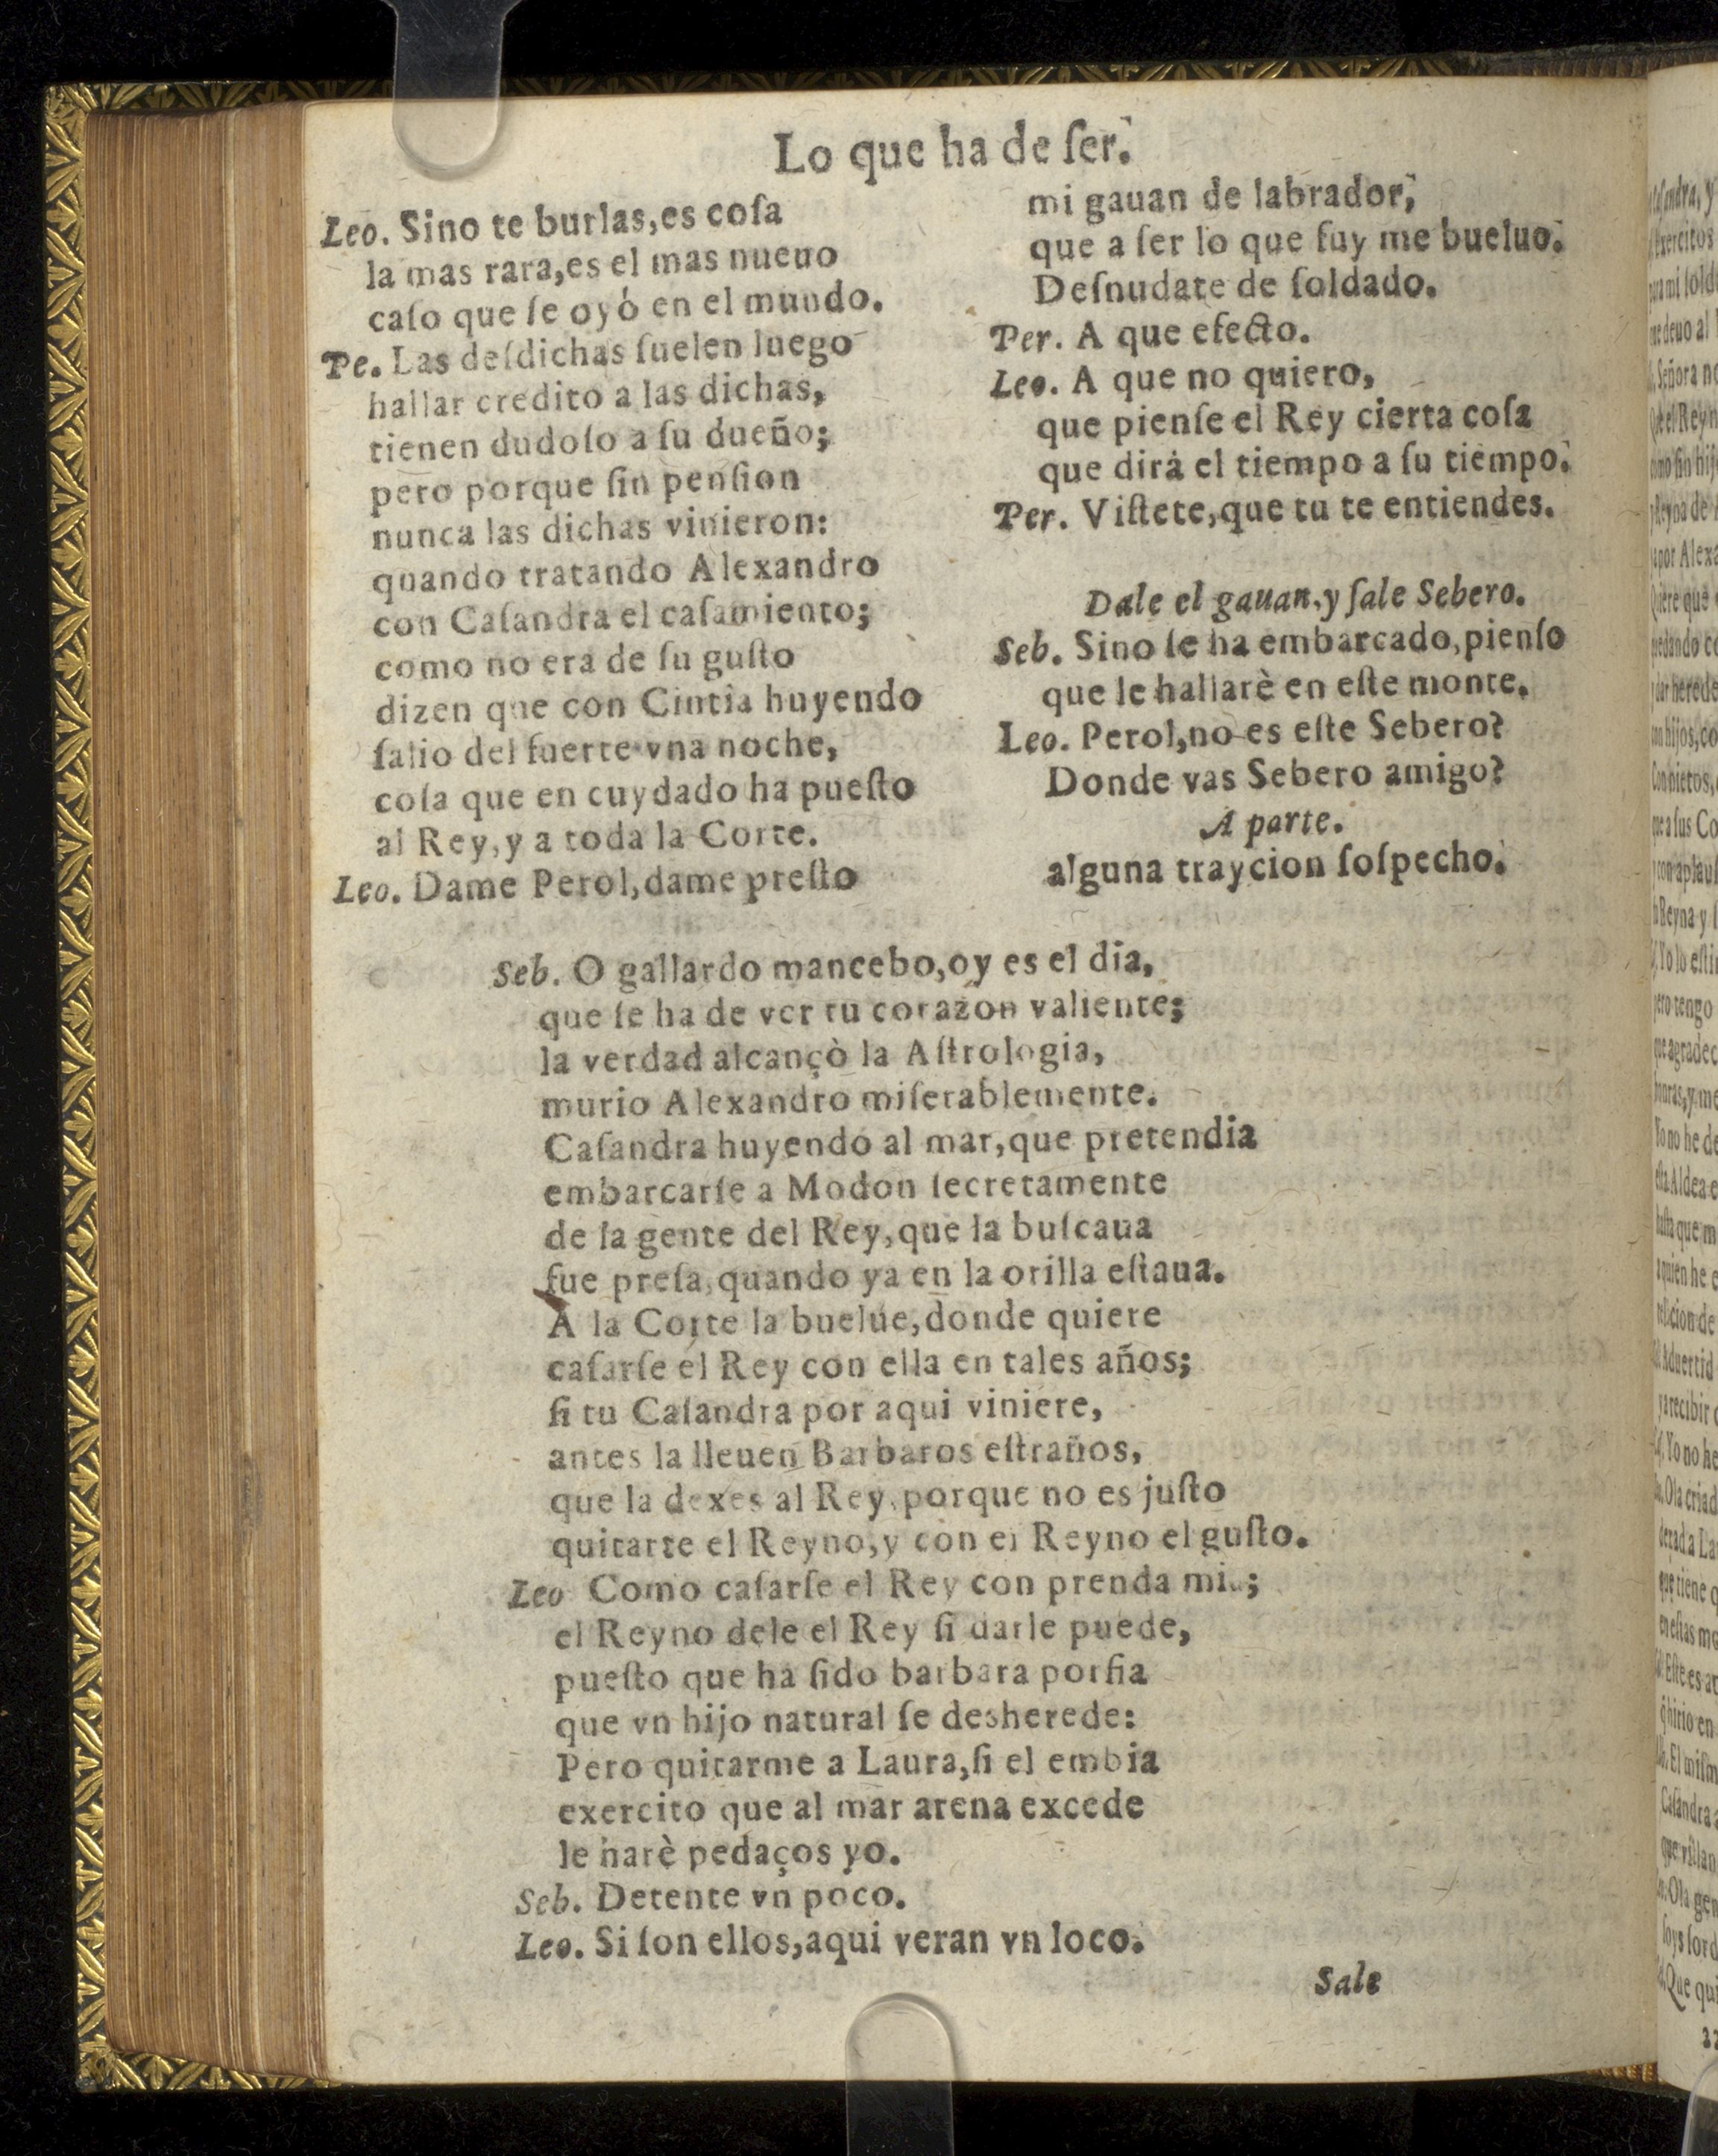 Lo que ha de ſer.
Leo. Sino te burlas,es coſa
la mas rara,es el mas nueuo
caſo que ſe oyó en el mundo.
Pe. Las deſdichas ſuelen luego
hallar credito a las dichas,
tienen dudoſo a ſu dueño;
pero porque ſin penſion
nunca las dichas vinieron:
quando tratando Alexandro
con Caſandra el caſamiento;
como no era de ſu guſto
dizen que con Cintia huyendo
ſalio del fuerte vna noche,
coſa que en cuydado ha pueſto
al Rey,y a toda la Corte.
Leo. Dame Perol,dame preſto
mi gauan de labrador,
que a ſer lo que fuy me bueluo.
Deſnudate de ſoldado.
Per. A que efecto.
Leo. A que no quiero,
que pienſe el Rey cierta coſa
que dirá el tiempo a ſu tiempo.
Per. Viſtete,que tu te entiendes.
Dale el gauan,y ſale Sebero.
Seb. Sino ſe ha embarcado,pienſo
que le hallarè en eſte monte.
Leo. Perol,no es eſte Sebero?
Donde vas Sebero amigo?
A parte.
alguna traycion ſoſpecho.
Seb. O gallardo mancebo,oy es el dia,
que ſe ha de ver tu corazon valiente;
la verdad alcançò la Aſtrologia,
murio Alexandro miſerablemente.
Caſandra huyendo al mar,que pretendia
embarcarſe a Modon ſecretamente
de la gente del Rey,que la buſcaua
fue preſa,quando ya en la orilla eſtaua.
A la Corte la buelue,donde quiere
caſarſe el Rey con ella en tales años;
ſi tu Caſandra por aqui viniere,
antes la lleuen Barbaros eſtraños,
que la dexes al Rey,porque no es juſto
quitarte el Reyno,y con el Reyno el guſto.
Leo Como caſarſe el Rey con prenda mia;
el Reyno dele el Rey ſi darle puede,
pueſto que ha ſido barbara porfia
que vn hijo natural ſe desherede:
Pero quitarme a Laura,ſi el embia
exercito que al mar arena excede
le harè pedaços yo.
Seb. Detente vn poco.
Leo. Si ſon ellos,aqui veran vn loco.
Sale